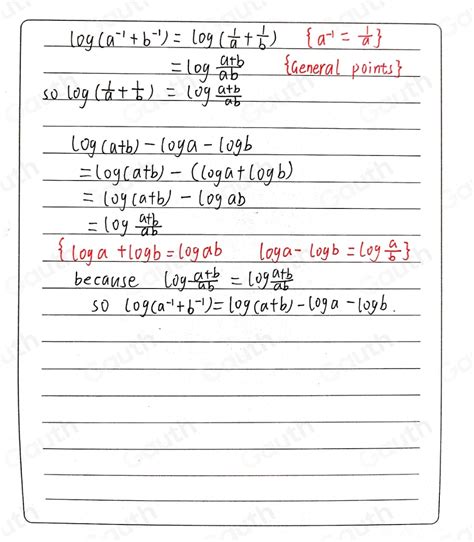 log(a⁻¹+b⁻¹) = log(1/a + 1/b) {a⁻¹ = 1/a}
= log (a+b)/(ab) {General points}
so log(1/a + 1/b) = log (a+b)/(ab)
log(a+b) - loga - logb
= log(a+b) - (loga + logb)
= log(a+b) - log ab
= log (a+b)/(ab)
{loga + logb = logab loga - logb = log a/b}
because log (a+b)/(ab) = log (a+b)/(ab)
so log(a⁻¹+b⁻¹) = log(a+b) - loga - logb.
Gauth